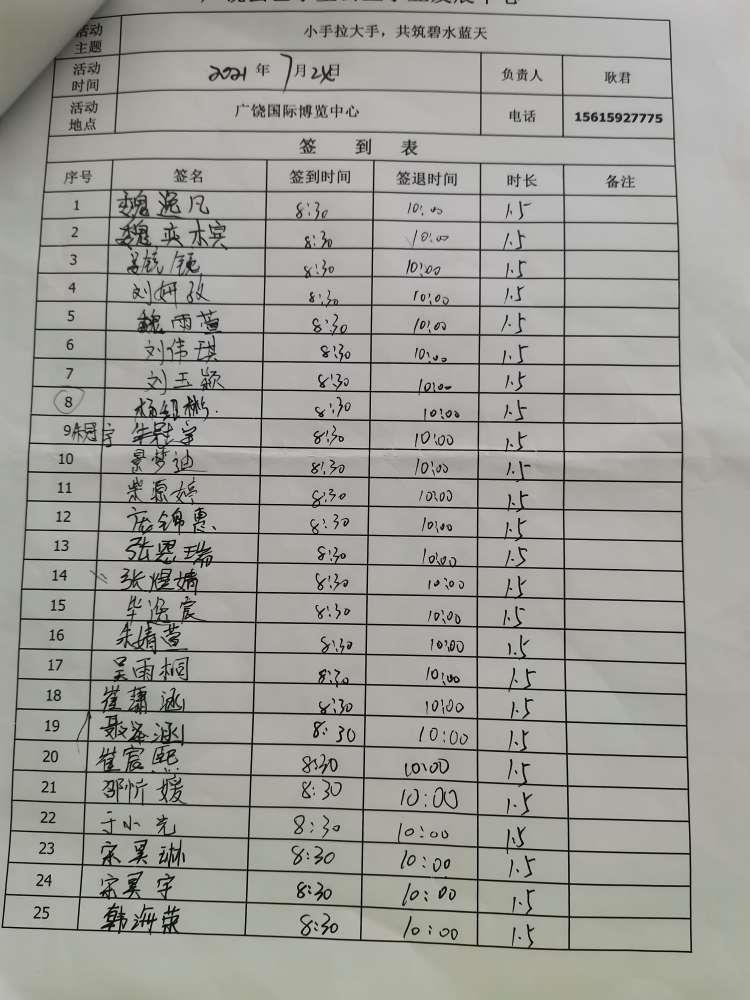 活动主题 小手拉大手，共筑碧水蓝天
活动时间 2021年7月24日 负责人 耿君
活动地点 广饶国际博览中心 电话 15615927775
签 到 表
序号 签名 签到时间 签退时间 时长 备注
1 魏逸凡 8:30 10:00 1.5
2 魏奕木宾 8:30 10:00 1.5
3 8:30 10:00 1.5
4 刘妍孜 8:30 10:00 1.5
5 魏雨萱 8:30 10:00 1.5
6 刘伟琪 8:30 10:00 1.5
7 刘玉颖 8:30 10:00 1.5
8 杨钰彬 8:30 10:00 1.5
9 朱冠宇 8:30 10:00 1.5
10 景梦迪 8:30 10:00 1.5
11 柴源婷 8:30 10:00 1.5
12 庞锦惠 8:30 10:00 1.5
13 张恩瑞 8:30 10:00 1.5
14 张煜婧 8:30 10:00 1.5
15 毕滢宸 8:30 10:00 1.5
16 朱婧萱 8:30 10:00 1.5
17 吴雨桐 8:30 10:00 1.5
18 崔潇涵 8:30 10:00 1.5
19 聂泽涵 8:30 10:00 1.5
20 崔宸熙 8:30 10:00 1.5
21 邵忻媛 8:30 10:00 1.5
22 于小光 8:30 10:00 1.5
23 宋昊琳 8:30 10:00 1.5
24 宋昊宇 8:30 10:00 1.5
25 韩海荣 8:30 10:00 1.5